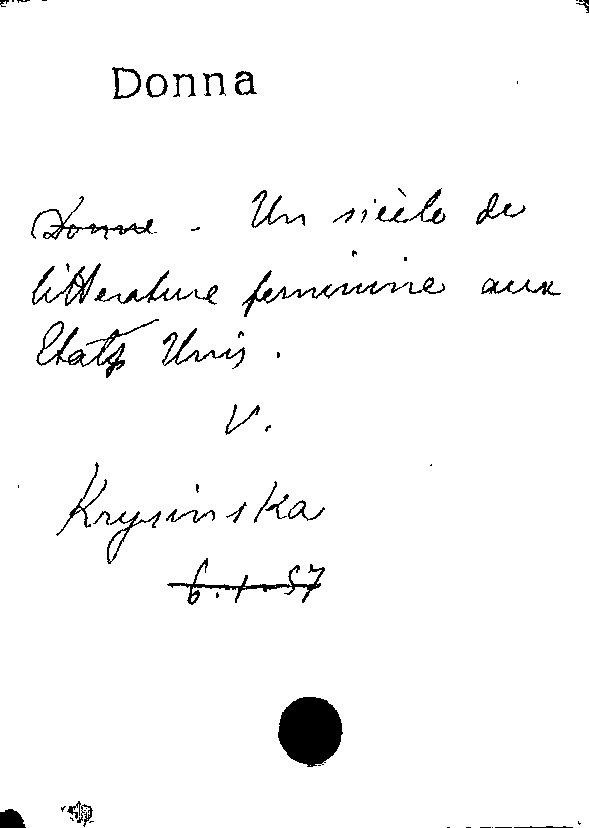 Donna
Donne - Un siècle de
litterature feminine aux
Etats Unis.
V.
Krysinska
6.1.57